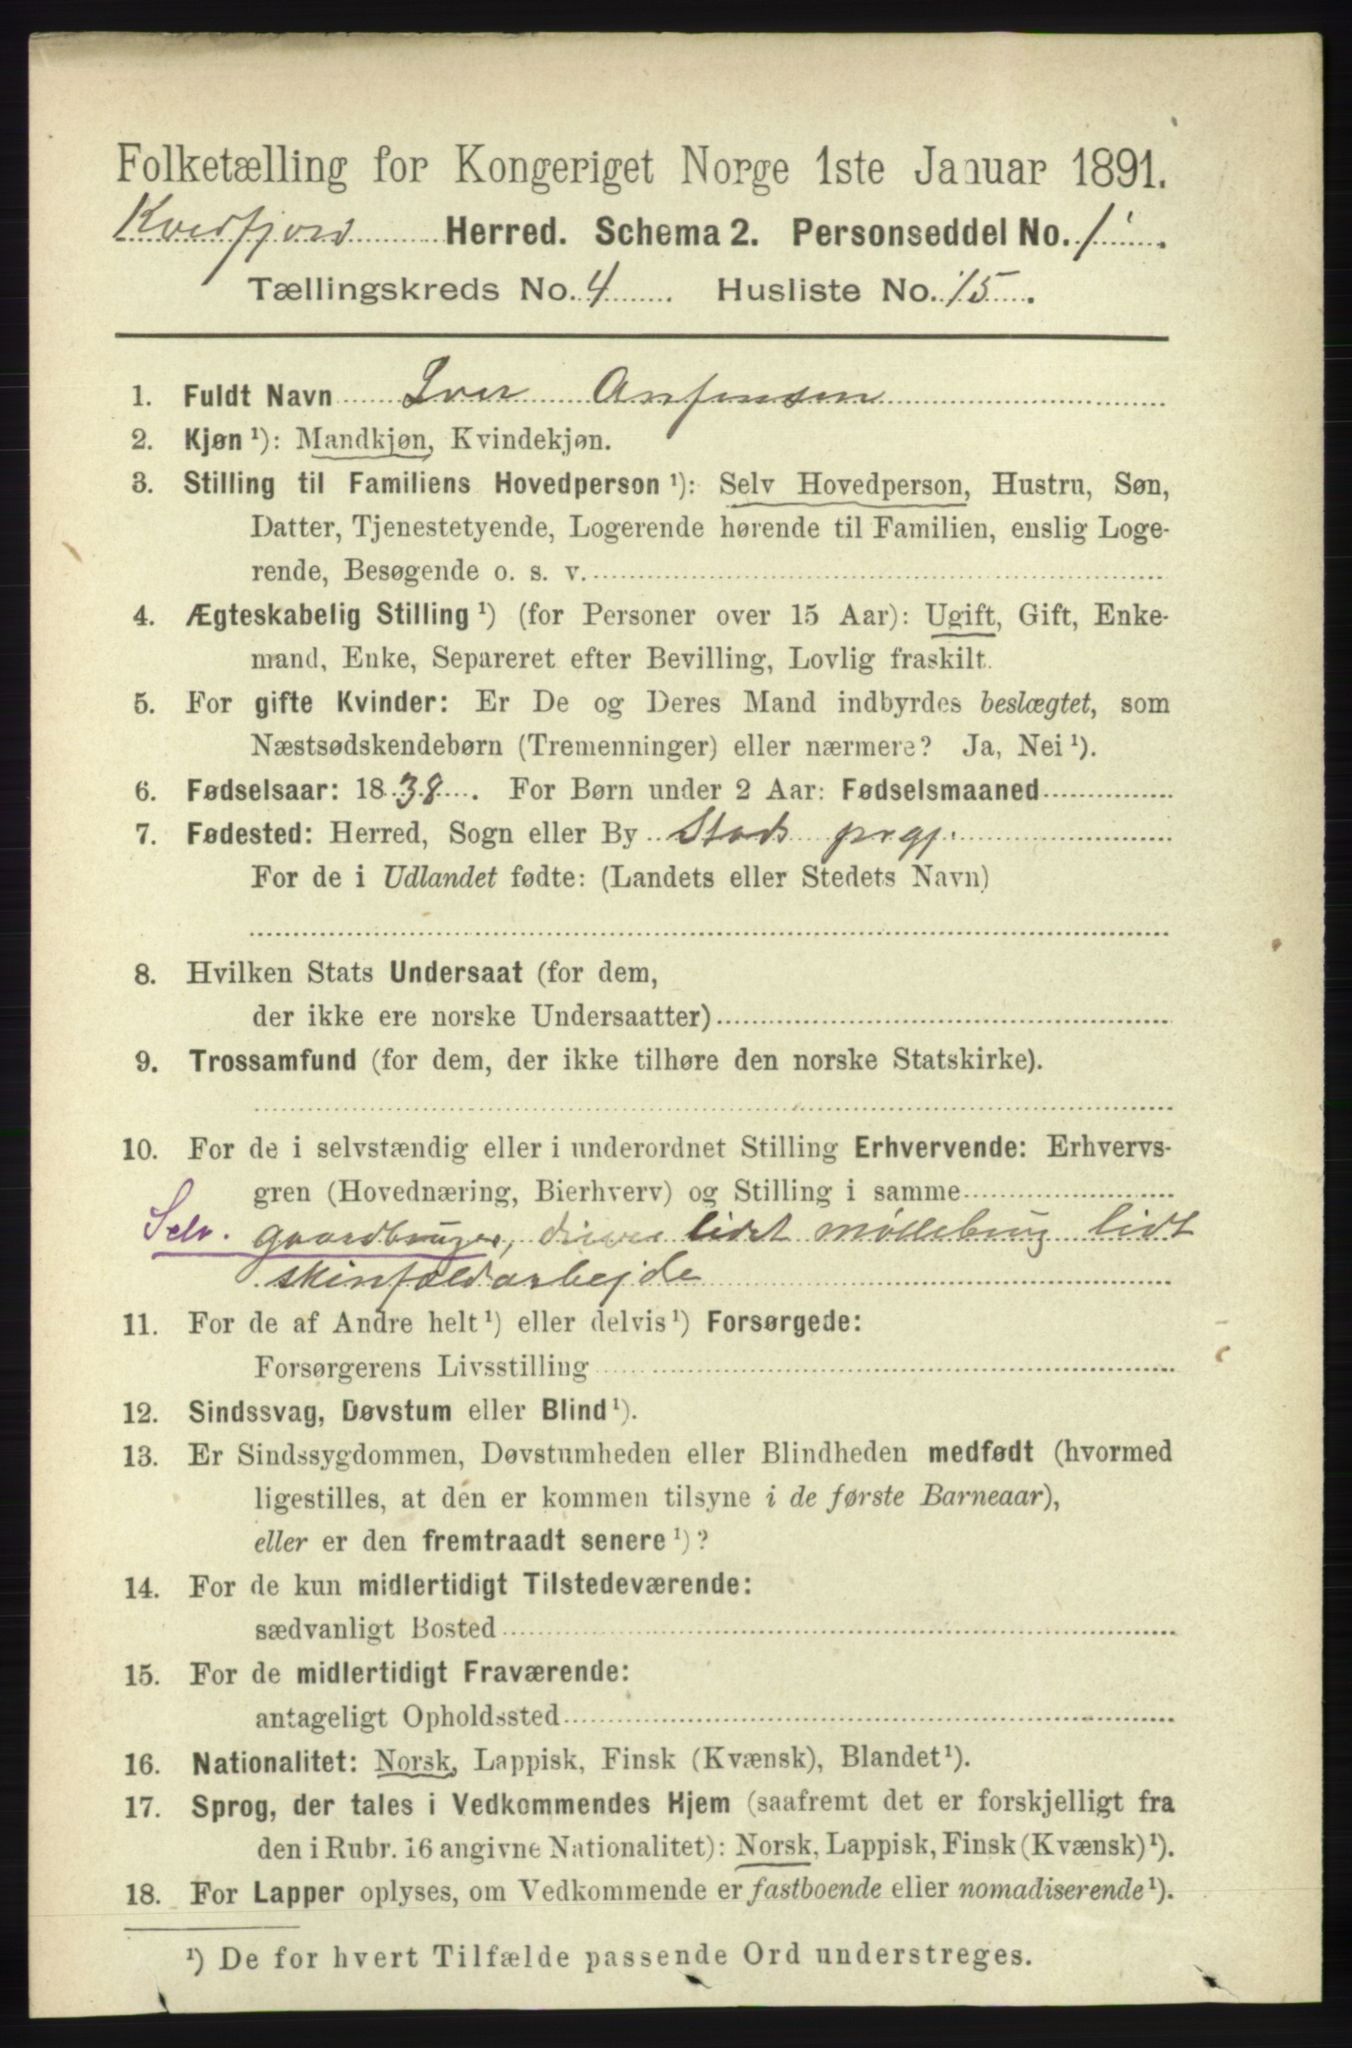 Folketælling for Kongeriget Norge 1ste Januar 1891.
Kvedfjord Herred. Schema 2. Personseddel No. 1.
Tællingskreds No. 4 Husliste No. 15.
1. Fuldt Navn Iver Anfensen
2. Kjøn ¹): Mandkjøn, Kvindekjøn.
3. Stilling til Familiens Hovedperson ¹): Selv Hovedperson, Hustru, Søn,
Datter, Tjenestetyende, Logerende hørende til Familien, enslig Loge-
rende, Besøgende o. s. v.
4. Ægteskabelig Stilling ¹) (for Personer over 15 Aar): Ugift, Gift, Enke-
mand, Enke, Separeret efter Bevilling, Lovlig fraskilt.
5. For gifte Kvinder: Er De og Deres Mand indbyrdes beslægtet, som
Næstsødskendebørn (Tremenninger) eller nærmere? Ja, Nei ¹).
6. Fødselsaar: 1838. For Børn under 2 Aar: Fødselsmaaned
7. Fødested: Herred, Sogn eller By Stods prgj.
For de i Udlandet fødte: (Landets eller Stedets Navn)
8. Hvilken Stats Undersaat (for dem,
der ikke ere norske Undersaatter)
9. Trossamfund (for dem, der ikke tilhøre den norske Statskirke).
10. For de i selvstændig eller i underordnet Stilling Erhvervende: Erhvervs-
gren (Hovednæring, Bierhverv) og Stilling i samme
Selv. gaardbruger, driver lidet møllebrug lidt
skinfældarbejde
11. For de af Andre helt ¹) eller delvis ¹) Forsørgede:
Forsørgerens Livsstilling
12. Sindssvag, Døvstum eller Blind ¹).
13. Er Sindssygdommen, Døvstumheden eller Blindheden medfødt (hvormed
ligestilles, at den er kommen tilsyne i de første Barneaar),
eller er den fremtraadt senere ¹)?
14. For de kun midlertidigt Tilstedeværende:
sædvanligt Bosted
15. For de midlertidigt Fraværende:
antageligt Opholdssted
16. Nationalitet: Norsk, Lappisk, Finsk (Kvænsk), Blandet ¹).
17. Sprog, der tales i Vedkommendes Hjem (saafremt det er forskjelligt fra
den i Rubr. 16 angivne Nationalitet): Norsk, Lappisk, Finsk (Kvænsk) ¹).
18. For Lapper oplyses, om Vedkommende er fastboende eller nomadiserende ¹).
¹) De for hvert Tilfælde passende Ord understreges.